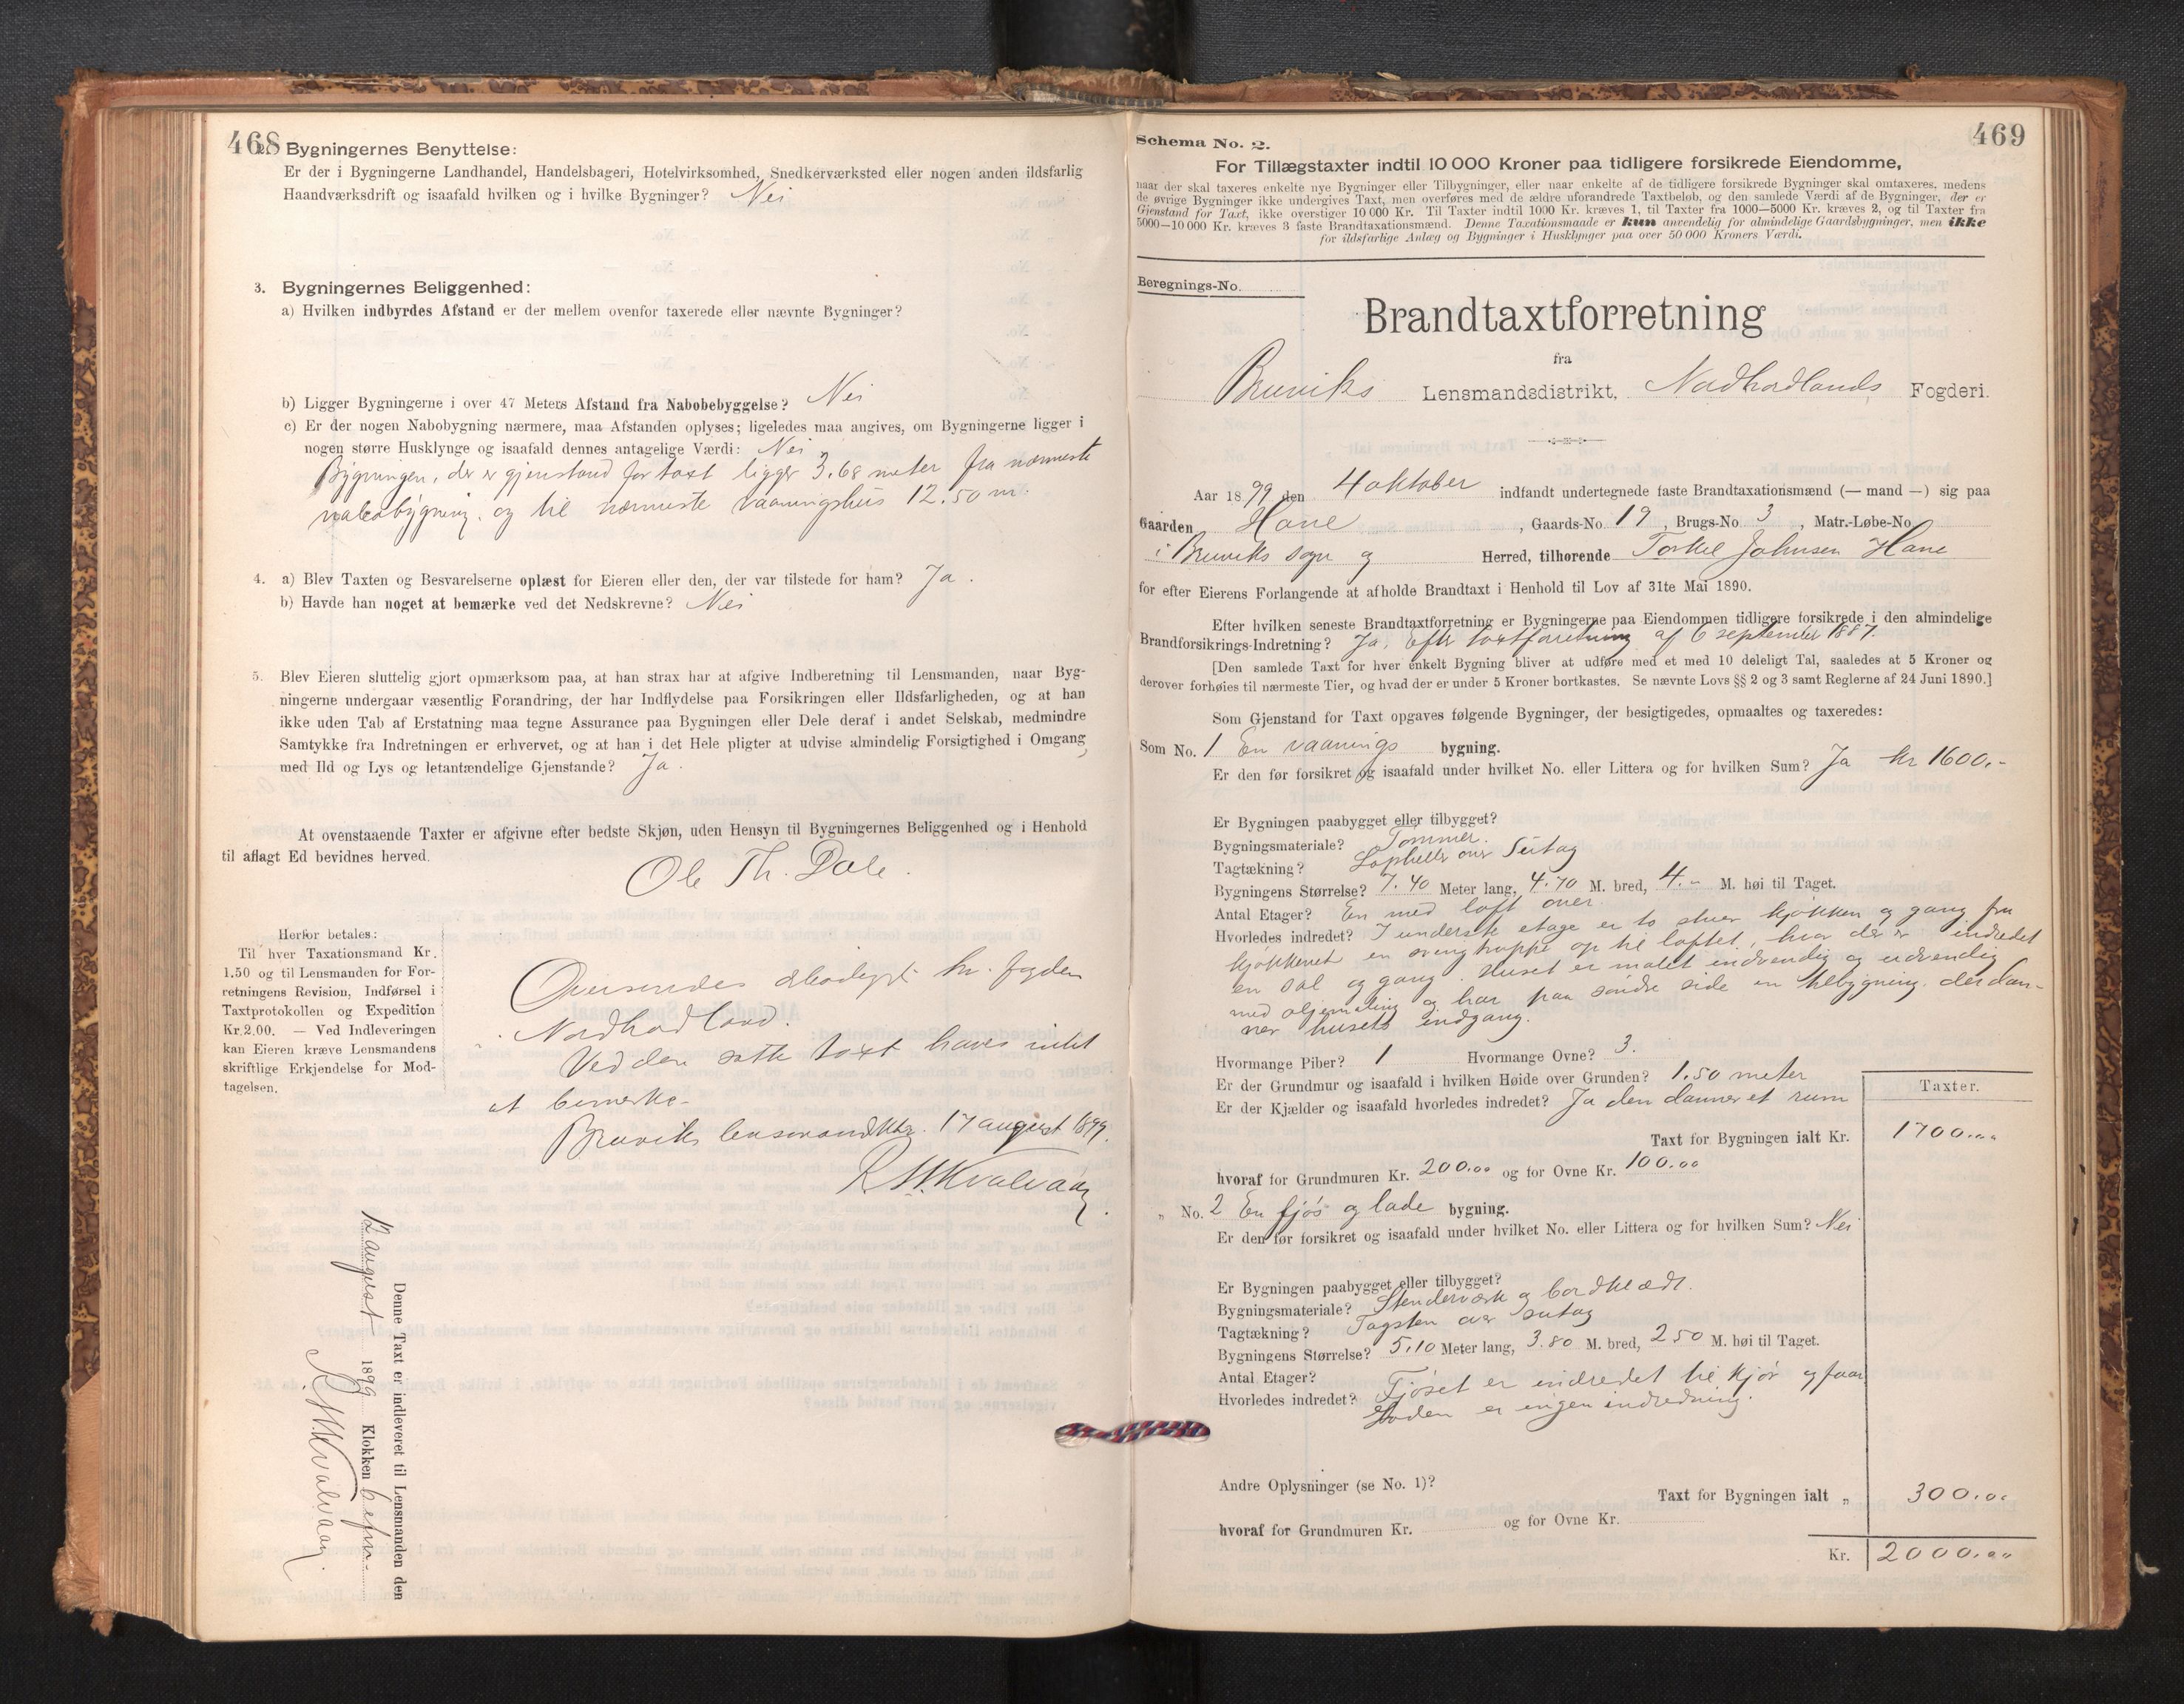 468
2. Bygningernes Benyttelse:
Er der i Bygningerne Landhandel, Handelsbageri, Hotelvirksomhed, Snedkerværksted eller nogen anden ildsfarlig
Haandværksdrift og isaafald hvilken og i hvilke Bygninger? Nei
3. Bygningernes Beliggenhed:
a) Hvilken indbyrdes Afstand er der mellem ovenfor taxerede eller nævnte Bygninger?
b) Ligger Bygningerne i over 47 Meters Afstand fra Nabobebyggelse? Nei
c) Er der nogen Nabobygning nærmere, maa Afstanden oplyses; ligeledes maa angives, om Bygningerne ligger i
nogen større Husklynge og isaafald dennes antagelige Værdi: Nei
Bygningen, der er gjenstand for taxt ligger 3.68 meter fra nærmeste
nabobygning. og til nærmeste vaaningshus 12.50 m.
4. a) Blev Taxten og Besvarelserne oplæst for Eieren eller den, der var tilstede for ham? Ja.
b) Havde han noget at bemærke ved det Nedskrevne? Nei
5. Blev Eieren sluttelig gjort opmærksom paa, at han strax har at afgive Indberetning til Lensmanden, naar Byg-
ningerne undergaar væsentlig Forandring, der har Indflydelse paa Forsikringen eller Ildsfarligheden, og at han
ikke uden Tab af Erstatning maa tegne Assurance paa Bygningen eller Dele deraf i andet Selskab, medmindre
Samtykke fra Indretningen er erhvervet, og at han i det Hele pligter at udvise almindelig Forsigtighed i Omgang
med Ild og Lys og letantændelige Gjenstande? Ja.
At ovenstaaende Taxter er afgivne efter bedste Skjøn, uden Hensyn til Bygningernes Beliggenhed og i Henhold
til aflagt Ed bevidnes herved.
Ole Th. Dale.
Herfor betales:
Til hver Taxationsmand Kr.
1.50 og til Lensmanden for For-
retningens Revision, Indførsel i
Taxtprotokollen og Expedition
Kr. 2.00. — Ved Indleveringen
kan Eieren kræve Lensmandens
skriftlige Erkjendelse for Mod-
tagelsen.
Oversendes ærbødigst hr. fogden
i Nordhordland.
Ved den satte taxt haves intet
at bemærke.
Bruviks lensmandsktr. 17 august 1899.
Kvalvaag
Denne Taxt er indleveret til Lensmanden den
august 1899 Klokken 6 efm.
Kvalvaag
469
Schema No. 2.
For Tillægstaxter indtil 10 000 Kroner paa tidligere forsikrede Eiendomme,
naar der skal taxeres enkelte nye Bygninger eller Tilbygninger, eller naar enkelte af de tidligere forsikrede Bygninger skal omtaxeres, medens
de øvrige Bygninger ikke undergives Taxt, men overføres med de ældre uforandrede Taxtbeløb, og den samlede Værdi af de Bygninger, der er
Gjenstand for Taxt, ikke overstiger 10 000 Kr. Til Taxter indtil 1000 Kr. kræves 1, til Taxter fra 1000—5000 Kr. kræves 2, og til Taxter fra
5000—10 000 Kr. kræves 3 faste Brandtaxationsmænd. Denne Taxationsmaade er kun anvendelig for almindelige Gaardsbygninger, men ikke
for ildsfarlige Anlæg og Bygninger i Husklynger paa over 50 000 Kroners Værdi.
Beregnings-No.
Brandtaxtforretning
fra
Bruviks Lensmandsdistrikt, Nordhordlands Fogderi.
Aar 1899 den 4 oktober indfandt undertegnede faste Brandtaxationsmænd (— mand —) sig paa
Gaarden Hane, Gaards-No. 19, Brugs-No. 3, Matr.-Løbe-No.
i Bruviks sogn og Herred, tilhørende Torkel Johnsen Hane
for efter Eierens Forlangende at afholde Brandtaxt i Henhold til Lov af 31te Mai 1890.
Efter hvilken seneste Brandtaxtforretning er Bygningerne paa Eiendommen tidligere forsikrede i den almindelige
Brandforsikrings-Indretning? Ja, Efter taxtforretning af 6 september 1887.
[Den samlede Taxt for hver enkelt Bygning bliver at udføre med et med 10 deleligt Tal, saaledes at 5 Kroner og
derover forhøies til nærmeste Tier, og hvad der er under 5 Kroner bortkastes. Se nævnte Lovs §§ 2 og 3 samt Reglerne af 24 Juni 1890.]
Som Gjenstand for Taxt opgaves følgende Bygninger, der besigtigedes, opmaaltes og taxeredes:
Som No. 1 En vaanings bygning.
Er den før forsikret og isaafald under hvilket No. eller Littera og for hvilken Sum? Ja kr 1600.-
Er Bygningen paabygget eller tilbygget?
Bygningsmateriale? Tømmer.
Tagtækning? over Sutag
Bygningens Størrelse? 7.40 Meter lang, 4.70 M. bred, 4.- M. høi til Taget.
Antal Etager? En med loft over
Hvorledes indredet? I underste etage er to stuer kjøkken og gang fra
kjøkkenet en svingtrappe op til loftet, hvor der er indredet
en sal og gang. Huset er malet indvendig og udvendig
med oljemaling og har paa søndre side en tilbygning, der dan-
ner husets indgang.
Hvormange Piber? 1 Hvormange Ovne? 3.
Er der Grundmur og isaafald i hvilken Høide over Grunden? 1.50 meter
Er der Kjælder og isaafald hvorledes indredet? Ja den danner et rum
Taxter.
Taxt for Bygningen ialt Kr. 1700.00
hvoraf for Grundmuren Kr. 200.00 og for Ovne Kr. 100.00
„ No. 2 En fjøs og lade bygning.
Er den før forsikret og isaafald under hvilket No. eller Littera og for hvilken Sum? Nei
Er Bygningen paabygget eller tilbygget?
Bygningsmateriale? Stenderværk og bordklædt.
Tagtækning? Tagsten over sutag
Bygningens Størrelse? 5.10 Meter lang, 3.80 M. bred, 2.50 M. høi til Taget.
Antal Etager?
Hvorledes indredet? Fjøset er indredet til kjør og faar
Laden er ingen indredning.
Andre Oplysninger (se No. 1)?
Taxt for Bygningen ialt „ 300.00
hvoraf for Grundmuren Kr. og for Ovne Kr.
Kr. 2000.00